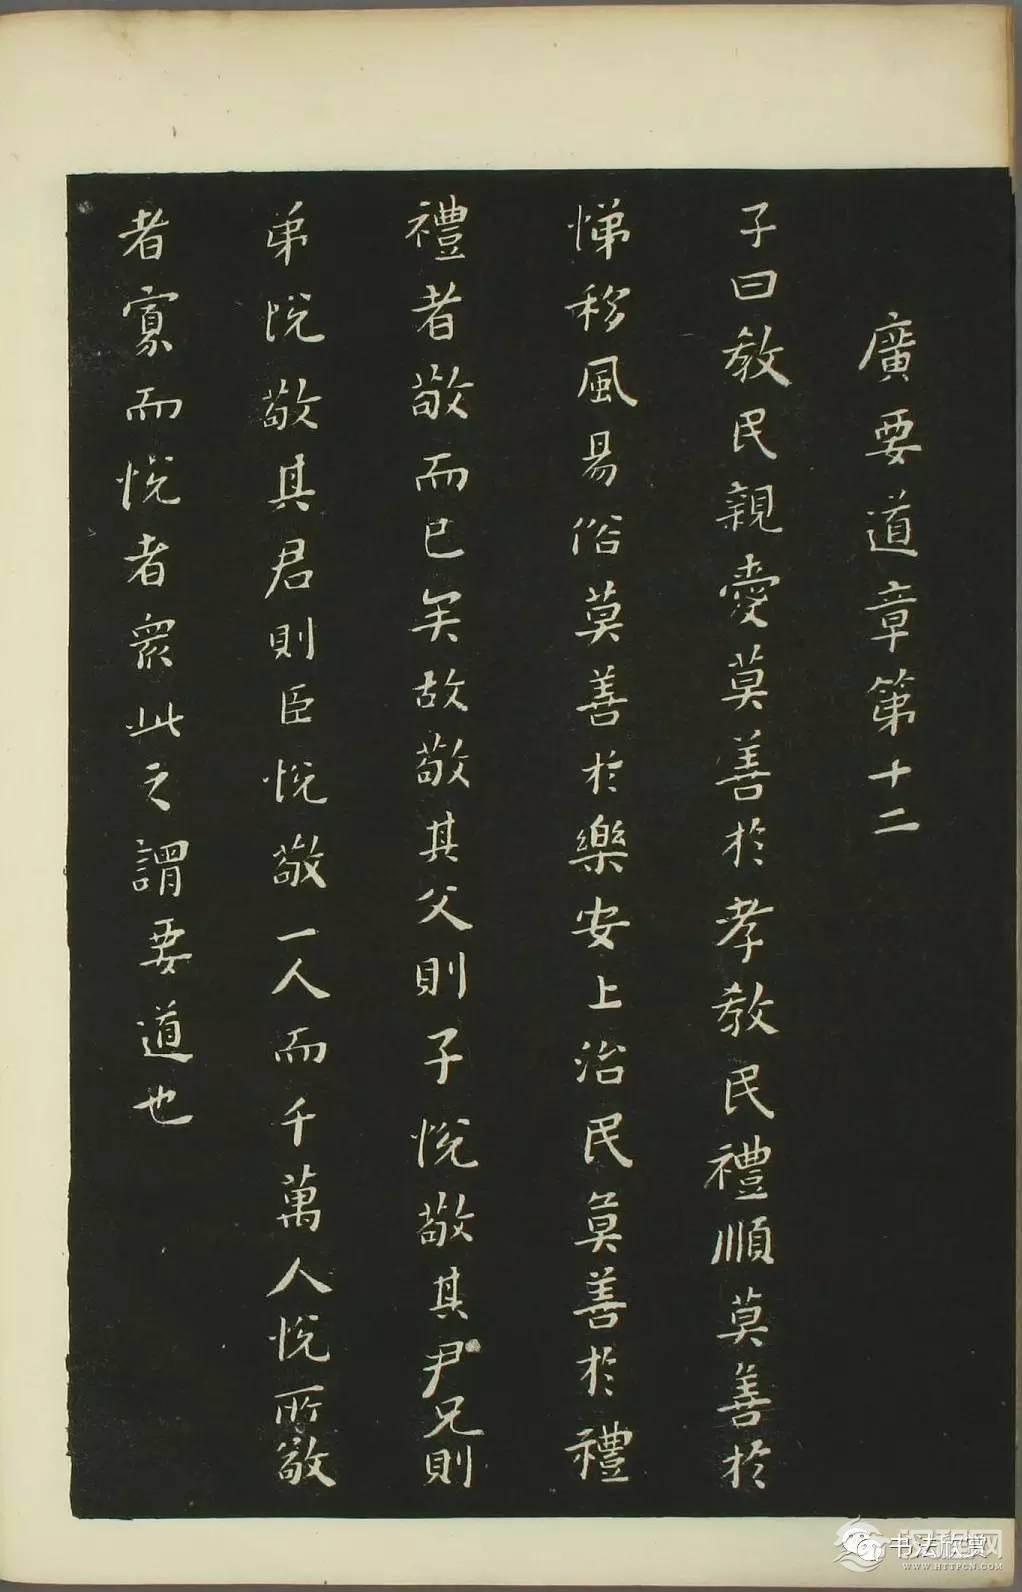 廣要道章第十二
子曰教民親愛莫善於孝教民禮順莫善於
悌移風易俗莫善於樂安上治民莫善於禮
禮者敬而已矣故敬其父則子悅敬其尹兄則
弟悅敬其君則臣悅敬一人而千萬人悅所敬
者寡而悅者衆此之謂要道也
书法欣赏
WWW.HTTPCN.COM